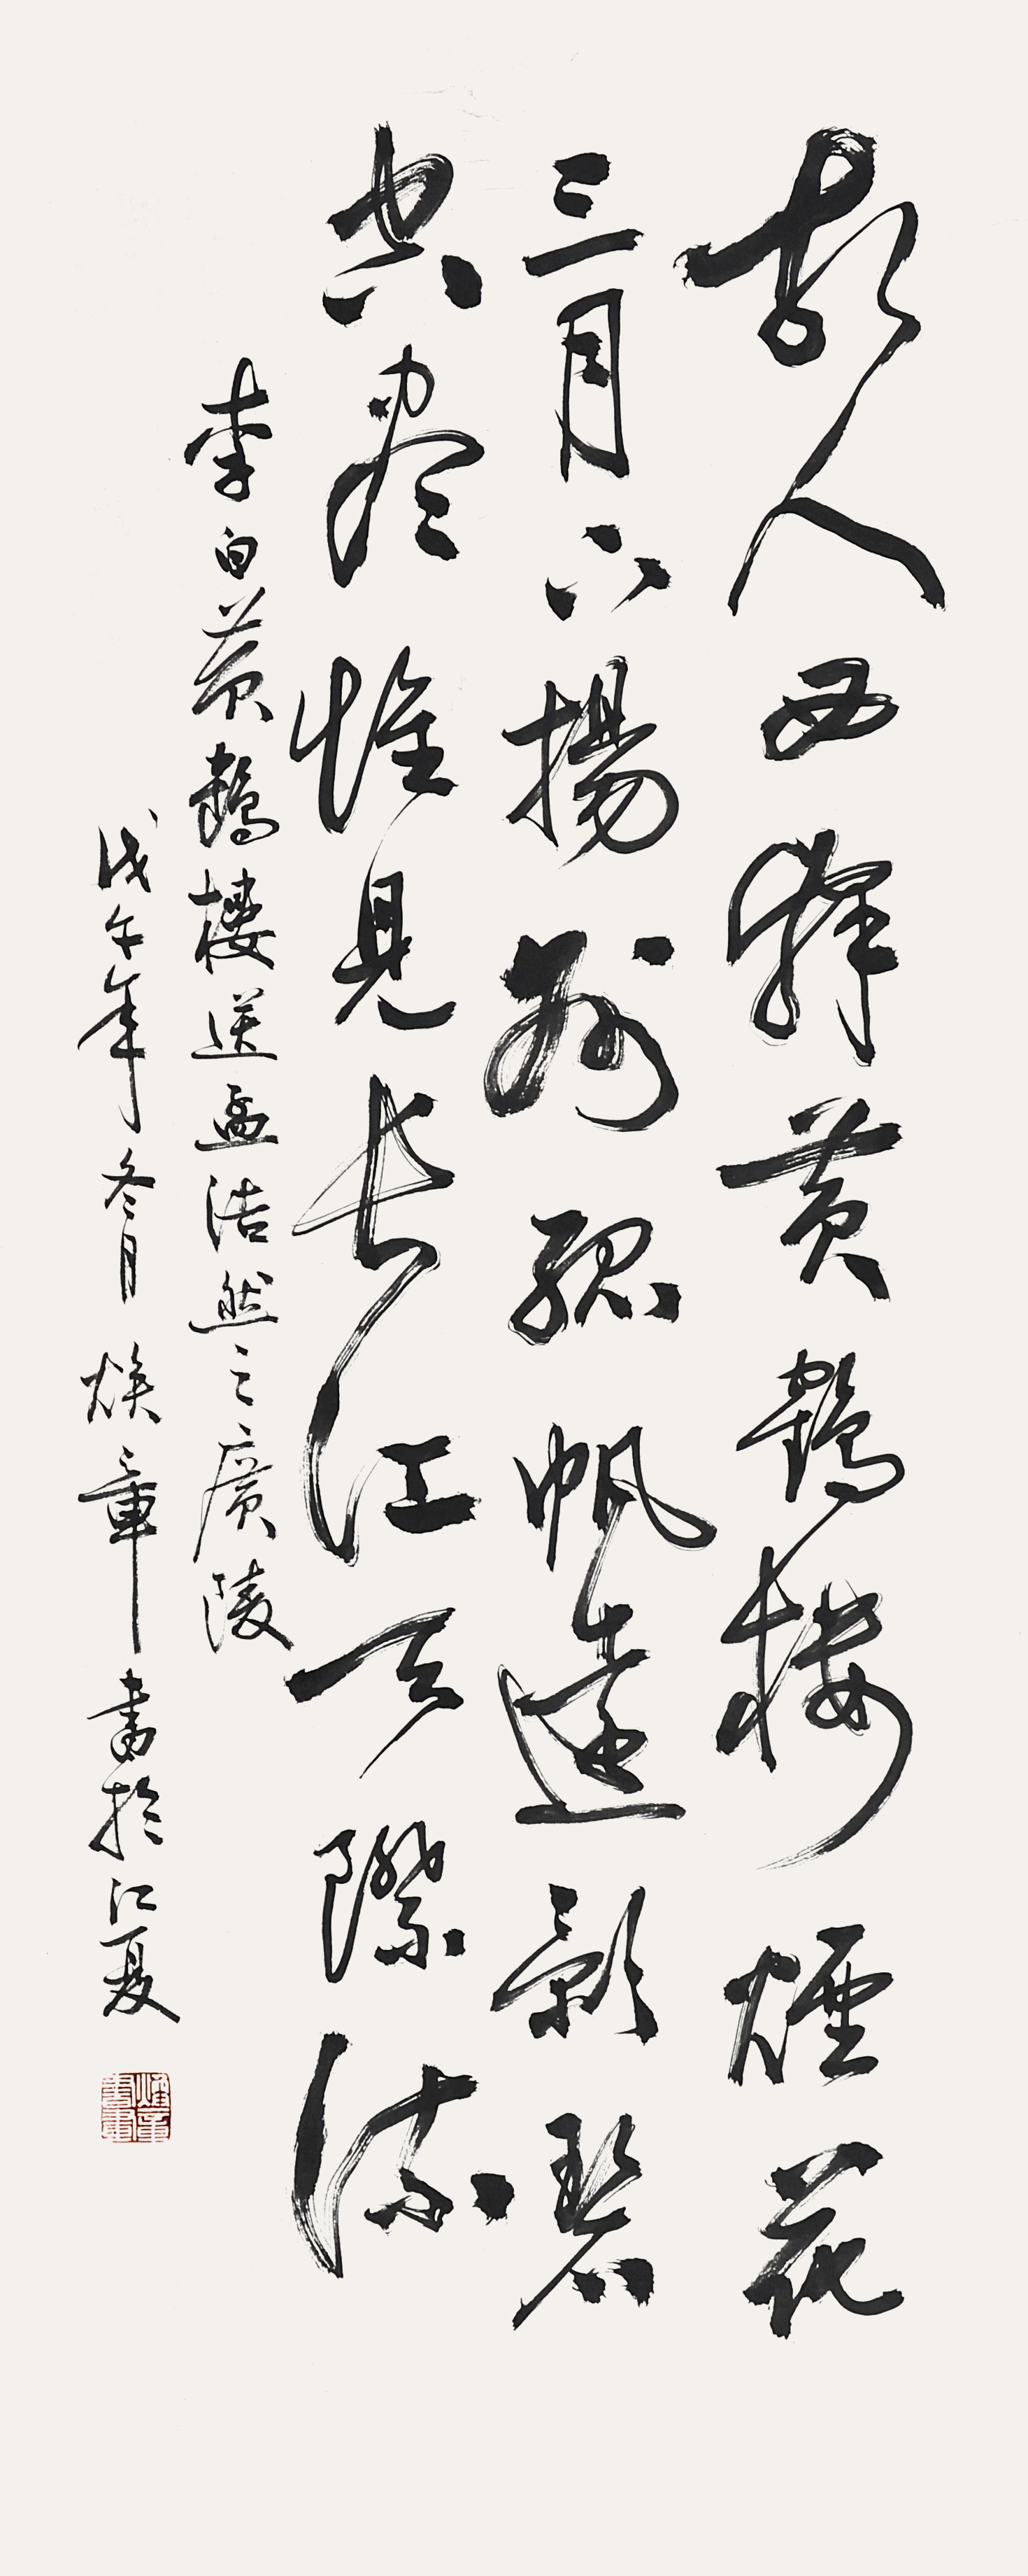 故人西辤黄鶴樓煙花
三月下揚州孤帆遠影碧
空盡惟見長江天際流
李白黄鶴樓送孟浩然之廣陵
戊午年冬月煥章書於江夏
煥章書畫